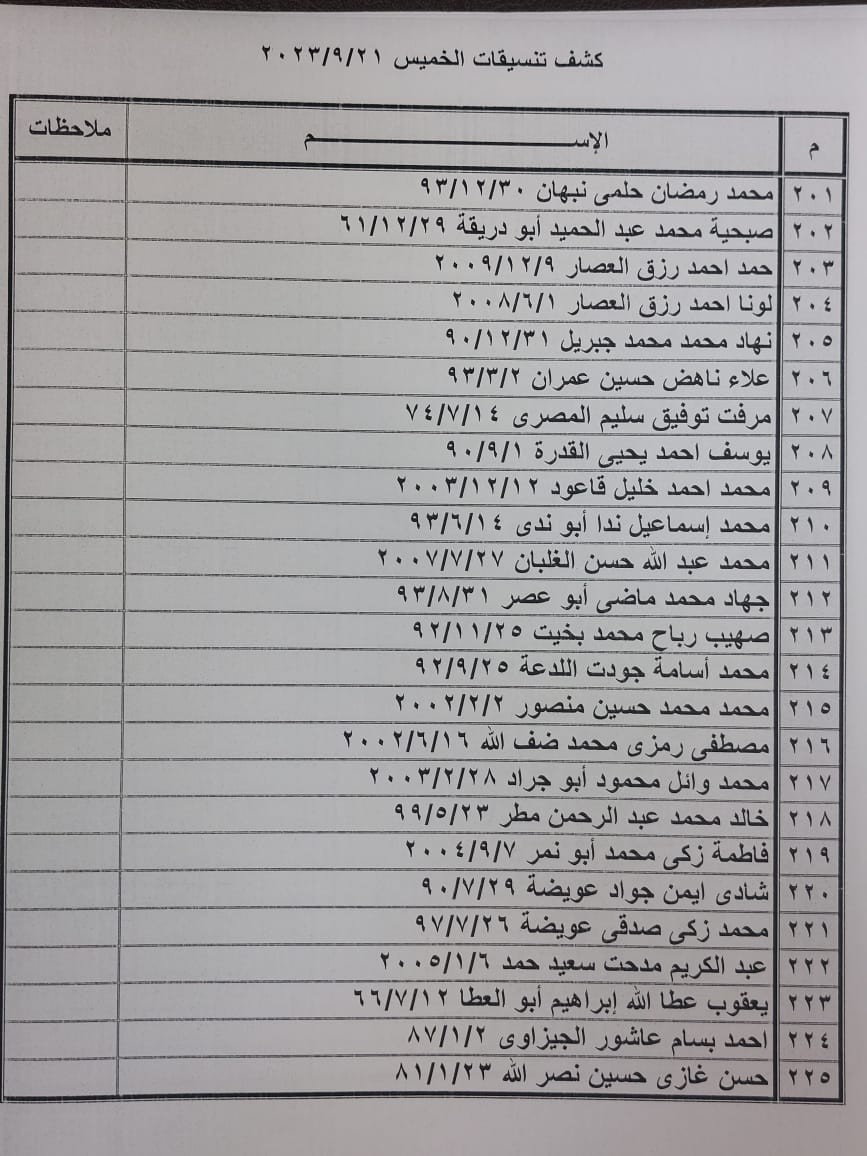 كشف تنسيقات الخميس ٢٠٢٣/٩/٢١
م الإســـم ملاحظات
٢٠١ محمد رمضان حلمى نبهان ٩٣/١٢/٣٠
٢٠٢ صبحية محمد عبد الحميد أبو دريقة ٦١/١٢/٢٩
٢٠٣ حمد احمد رزق العصار ٢٠٠٩/١٢/٩
٢٠٤ لونا احمد رزق العصار ٢٠٠٨/٦/١
٢٠٥ نهاد محمد محمد جبريل ٩٠/١٢/٣١
٢٠٦ علاء ناهض حسين عمران ٩٣/٣/٢
٢٠٧ مرفت توفيق سليم المصرى ٧٤/٧/١٤
٢٠٨ يوسف احمد يحيى القدرة ٩٠/٩/١
٢٠٩ محمد احمد خليل قاعود ٢٠٠٣/١٢/١٢
٢١٠ محمد إسماعيل ندا أبو ندى ٩٣/٦/١٤
٢١١ محمد عبد الله حسن الغلبان ٢٠٠٧/٧/٢٧
٢١٢ جهاد محمد ماضى أبو عصر ٩٣/٨/٣١
٢١٣ صهيب رباح محمد بخيت ٩٢/١١/٢٥
٢١٤ محمد أسامة جودت اللدعة ٩٢/٩/٢٥
٢١٥ محمد محمد حسين منصور ٢٠٠٢/٢/٢
٢١٦ مصطفى رمزى محمد ضف الله ٢٠٠٢/٦/١٦
٢١٧ محمد وائل محمود أبو جراد ٢٠٠٣/٢/٢٨
٢١٨ خالد محمد عبد الرحمن مطر ٩٩/٥/٢٣
٢١٩ فاطمة زكى محمد أبو نمر ٢٠٠٤/٩/٧
٢٢٠ شادى ايمن جواد عويضة ٩٠/٧/٢٩
٢٢١ محمد زكى صدقى عويضة ٩٧/٧/٢٦
٢٢٢ عبد الكريم مدحت سعيد حمد ٢٠٠٥/١/٦
٢٢٣ يعقوب عطا الله إبراهيم أبو العطا ٦٦/٧/١٢
٢٢٤ احمد بسام عاشور الجيزاوى ٨٧/١/٢
٢٢٥ حسن غازى حسين نصر الله ٨١/١/٢٣